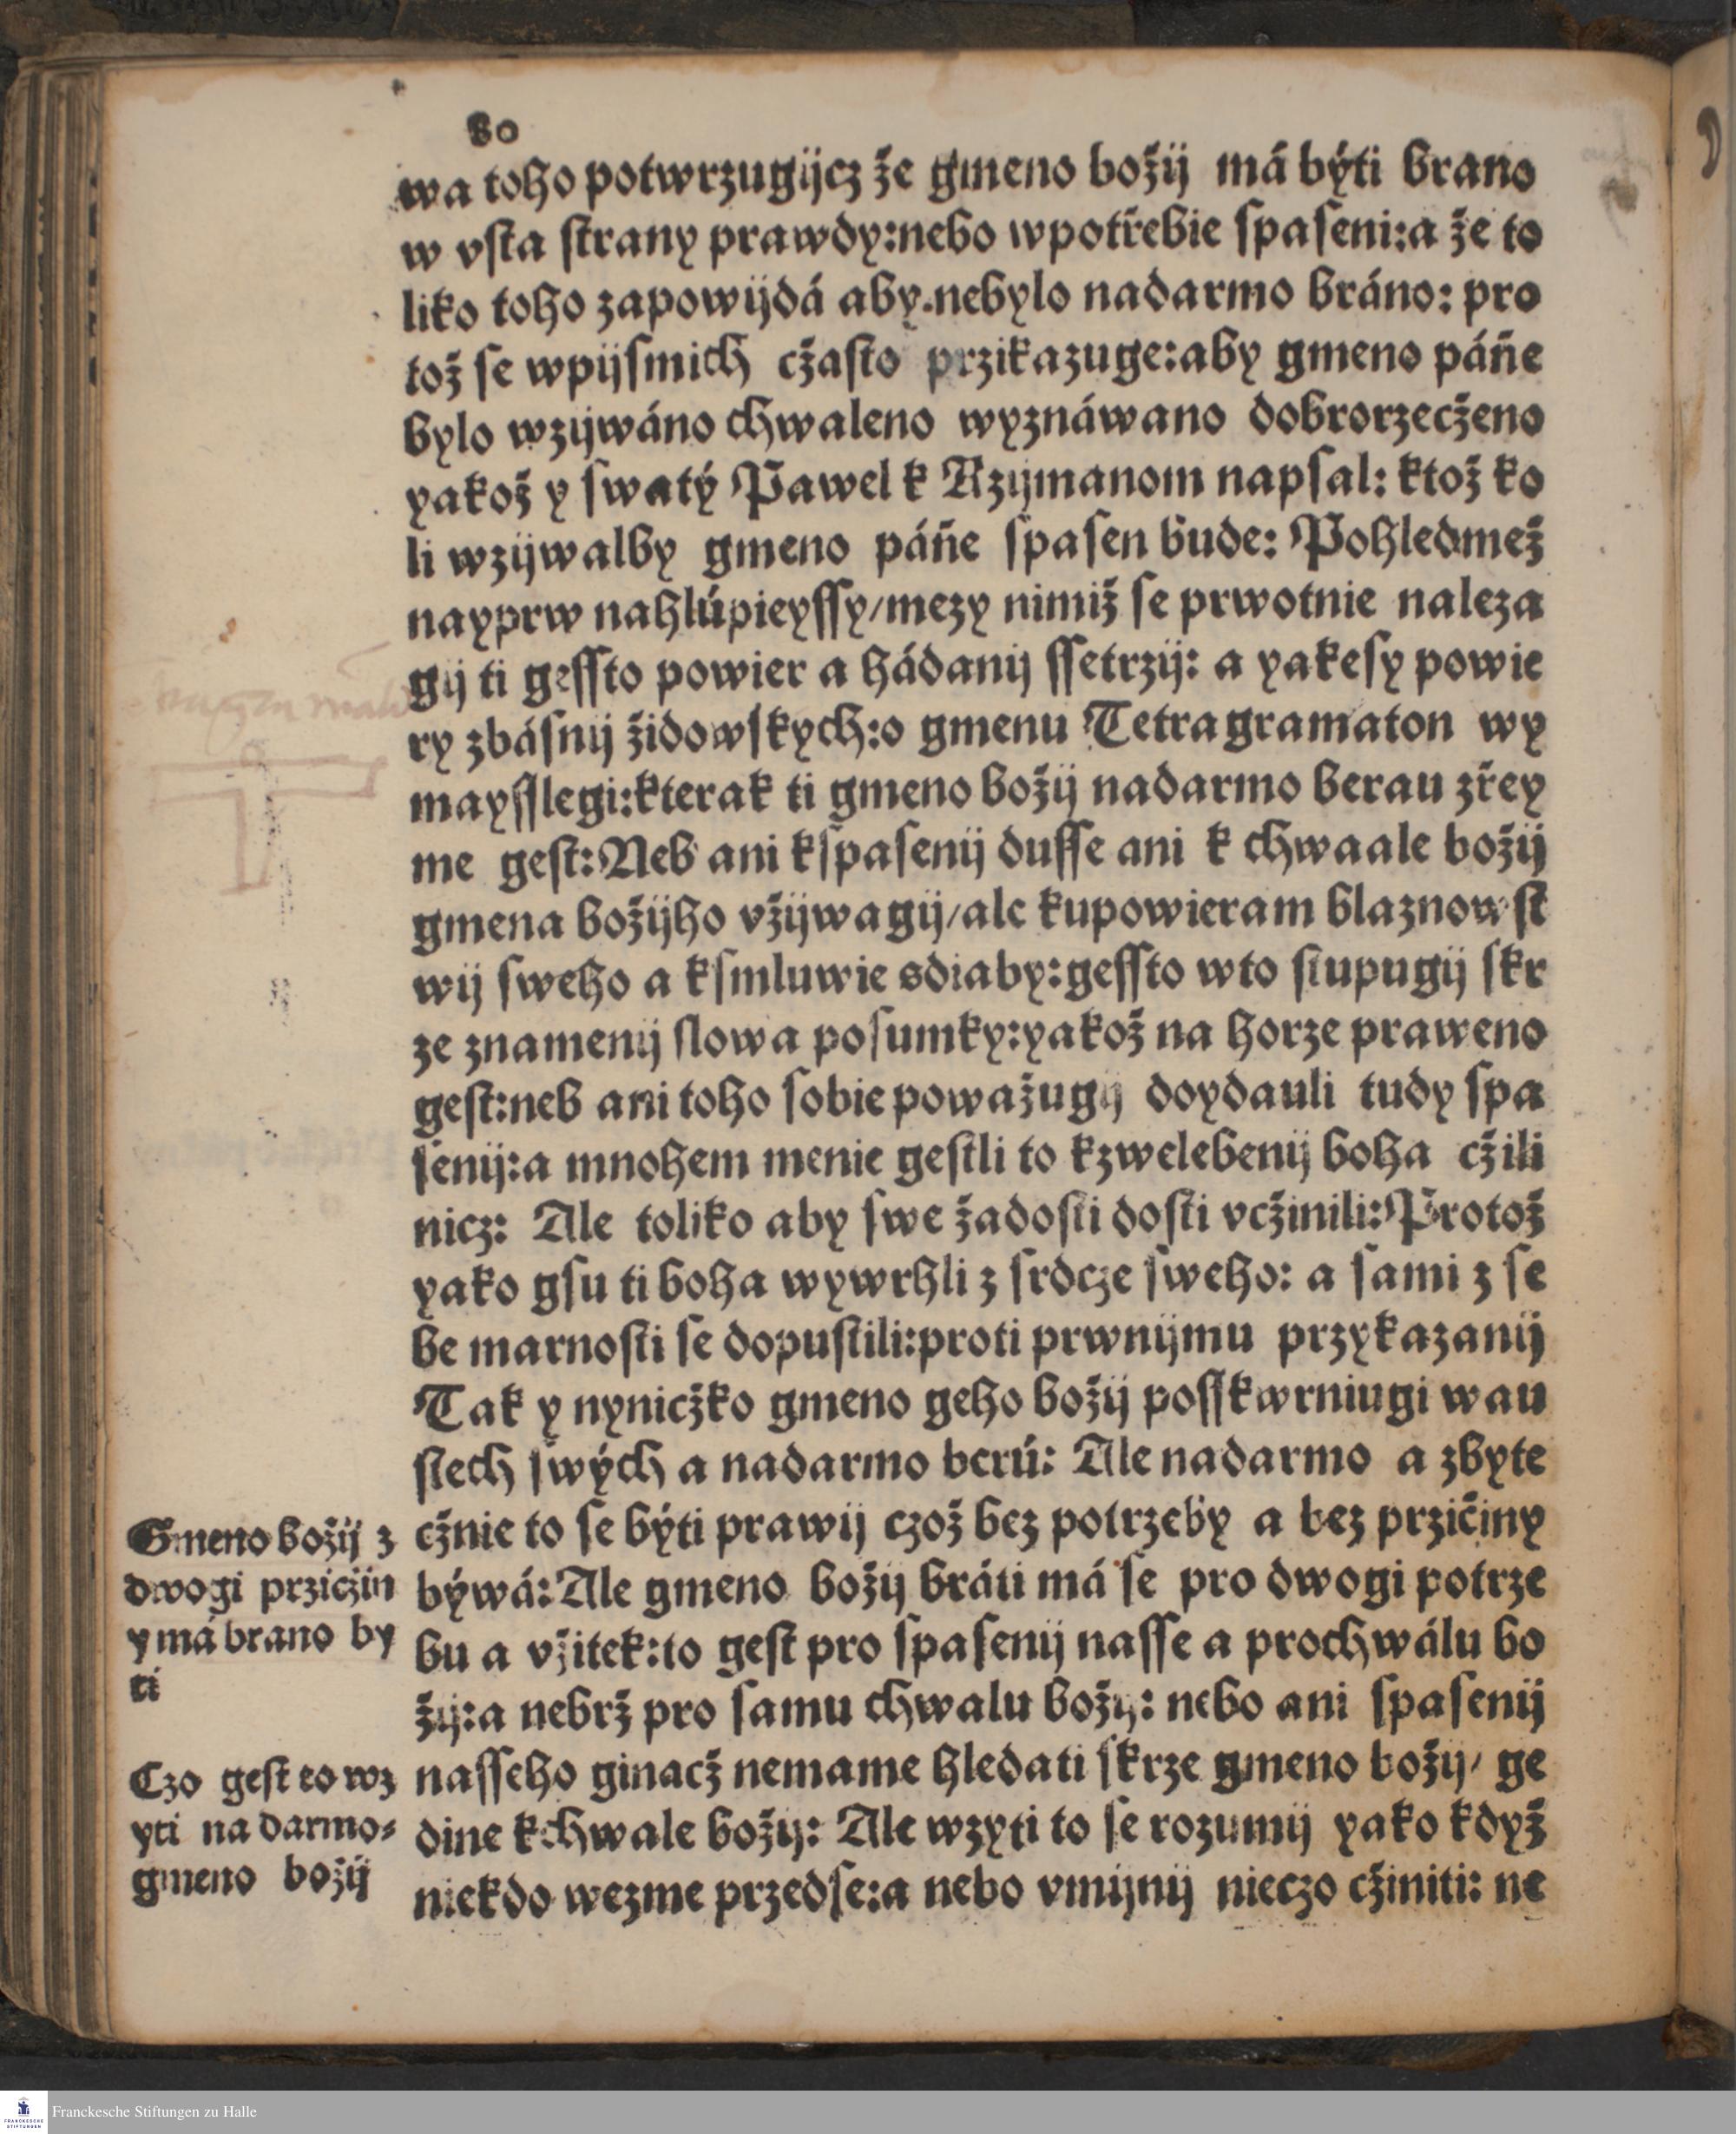 80
wa toho potwrzugijcz že gmeno božij má býti brano
w vsta strany prawdy:nebo wpotřebie spaseni:a že to
liko toho zapowijdá aby.nebylo nadarmo bráno: pro
tož se wpijsmich cžasto przikazuge:aby gmeno páňe
bylo wzijwáno chwaleno wyznáwano dobrorzecženo
yakož y swatý Pawel k Rzijmanom napsal: ktož ko
li wzijwalby gmeno páňe spasen bude: Pohledmež
nayprw nahlúpieyssy/mezy nimiž se prwotnie naleza
gij ti gessto powier a hádanij ssetrzij: a yakesy powie
ry zbásnij židowskych:o gmenu Tetragramaton wy
mayssslegi:kterak ti gmeno božij nadarmo berau zřey
me gest:Neb ani kspasenij dusse ani k chwaale božij
gmena božijho vžijwagij/ale kupowieram blaznowst
wij sweho a ksmluwie sdiaby:gessto wto stupugij skr
ze znamenij slowa posumky:yakož na horze praweno
gest:neb ani toho sobie považugij doydauli tudy spa
senij:a mnohem menie gestli to kzwelebenij boha cžili
nicz: Ale toliko aby swe žadosti dosti vcžinili:Protož
yako gsu ti boha wywrhli z srdcze sweho: a sami z se
be marnosti se dopustili:proti prwnijmu przykazanij
Tak y nynicžko gmeno geho božij posskwrniugi wau
stech swých a nadarmo berú: Ale nadarmo a zbyte
cžnie to se býti prawij czož bez potrzeby a bez przičiny
býwá:Ale gmeno božij bráti má se pro dwogi potrze
bu a vžitek:to gest pro spasenij nasse a prochwálu bo
žij:a nebrž pro samu chwalu božij: nebo ani spasenij
nasseho ginacž nemame hledati skrze gmeno božij/ ge
dine kchwale božij: Ale wzyti to se rozumij yako když
niekdo wezme przedse:a nebo vmijnij nieczo cžiniti: ne
Gmeno božij z
dwogi przicžin
y má brano by
ti
Czo gest to wz
yti na darmo⸗
gmeno božij
Franckesche Stiftungen zu Halle
FRANCKESCHE
STIFTUNGEN